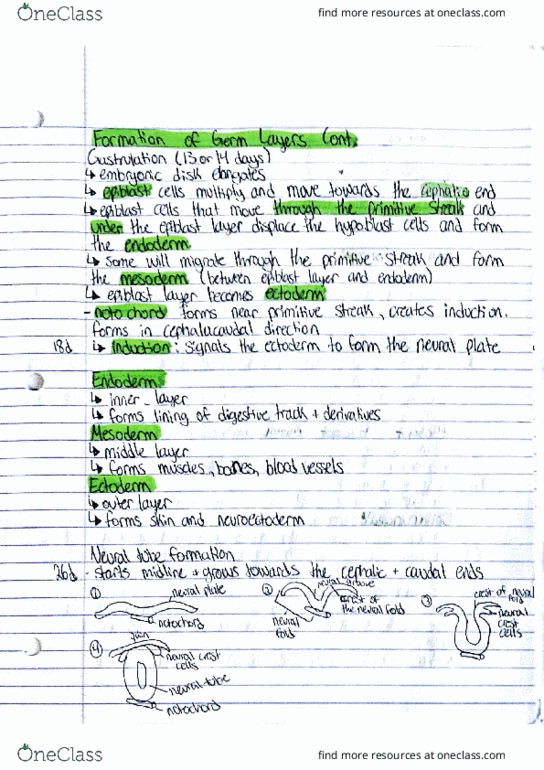 OneClass
find more resources at oneclass.com
Formation of Germ Layers Cont.
Gastrulation (13 or 14 days)
↳ embryonic disk elongates
↳ epiblast cells multiply and move towards the cephalic end
↳ epiblast cells that move through the primitive streak and
under the epiblast layer displace the hypoblast cells and form
the endoderm
↳ some will migrate through the primitive streak and form
the mesoderm (between epiblast layer and endoderm)
↳ epiblast layer becomes ectoderm
- notochord forms near primitive streak, creates induction.
forms in cephalacaudal direction
18d ↳ induction: signals the ectoderm to form the neural plate
Endoderm
↳ inner layer
↳ forms lining of digestive track + derivatives
Mesoderm
↳ middle layer
↳ forms muscles, bones, blood vessels
Ectoderm
↳ outer layer
↳ forms skin and neuroectoderm
Neural tube formation
26d - starts midline + grows towards the cephalic + caudal ends
① neural plate
notochord
② neural groove
crest of
the neural fold
neural
fold
③ crest of neural
fold
neural
crest
cells
④ skin
neural crest
cells
neural tube
notochord
OneClass
find more resources at oneclass.com